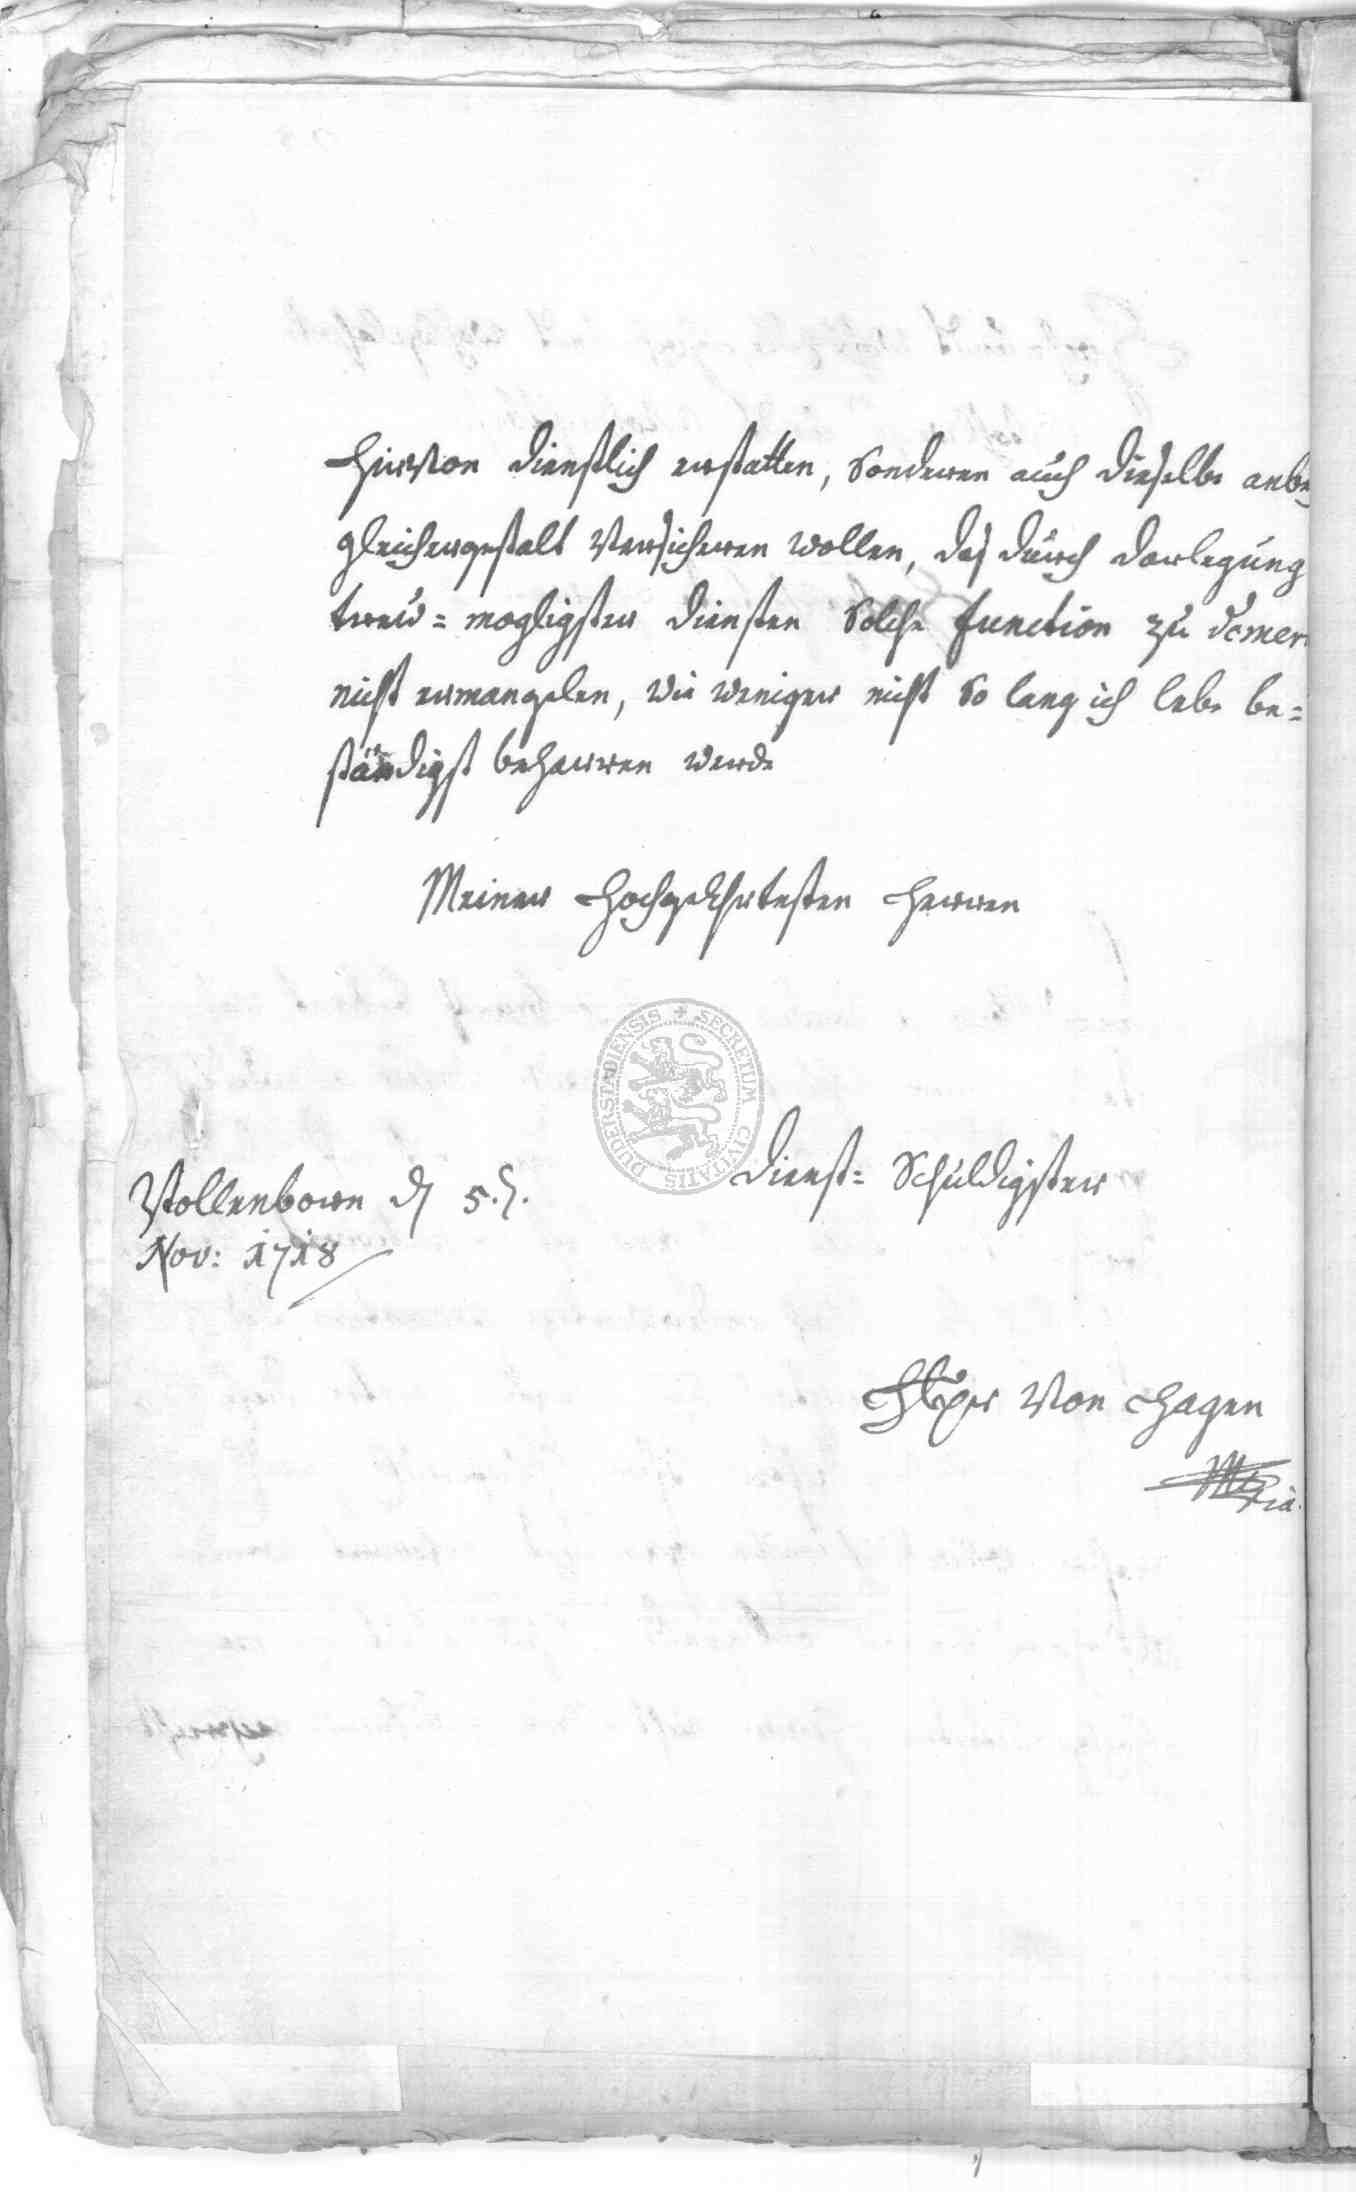 hiervon dienstlich erstatten, sonderen auch dieselbe anbey
gleichergestalt versicheren wollen, daß durch darlegung
trew= mögligster diensten solche function zu
nicht ermangelen, wie weniger nicht so lang ich lebe be=
ständigst beharren werde
Meiner Hochgeehrtesten Herren
SECRETUM CIVITATIS DUDERSTADIENSIS
dienst= schuldigster
Vollenborn d 5.t.
Nov: 1718
von Hagen